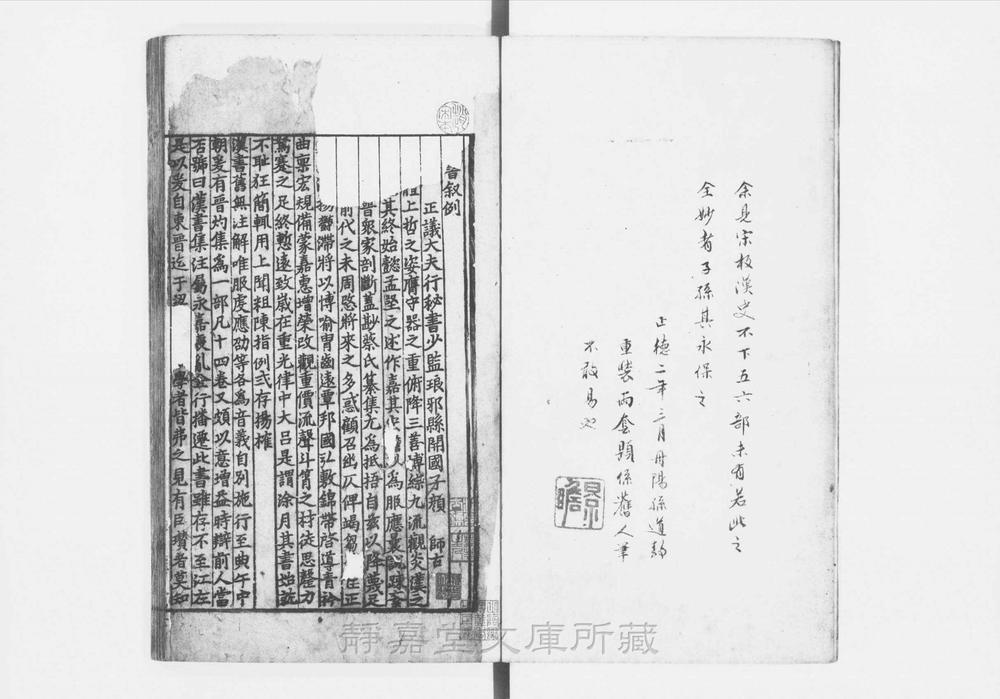 余見宋板漢史不下五六部未有若此之
全妙者子孫其永保之
正德二年三月丹陽孫道
重裝兩套題係舊人筆
不敢易也
景
瞻
叙例
正議大夫行秘書少監琅邪縣開國子顏 師古
上哲之姿膺守器之重俯降三善博綜九流觀炎漢之
其終始懿孟堅之述作嘉其 為服應曩說疎
晉眾家剖斷蓋尠蔡氏纂集尤為抵捂自兹以降蔑足
前代之未周愍將來之多惑顧召幽仄俾竭芻 匡正
鬱滯將以博喻胄齒遠覃邦國弘敷錦帶啓導青衿
曲禀宏規備蒙嘉惠增榮改觀重價流聲斗筲之材徒思罄力
駑蹇之足終慙遠致歲在重光律中大呂是謂涂月其書始就
不恥狂簡輒用上聞粗陳指例式存揚搉
漢書舊無注解唯服虔應劭等各為音義自別施行至典午中
朝爰有晉灼集為一部凡十四卷又頗以意增益時辯前人當
否號曰漢書集注屬永嘉喪亂金行播遷此書雖存不至江左
是以爰自東晉迄于 學者皆弗之見有臣瓚者莫知
靜嘉堂文庫所藏